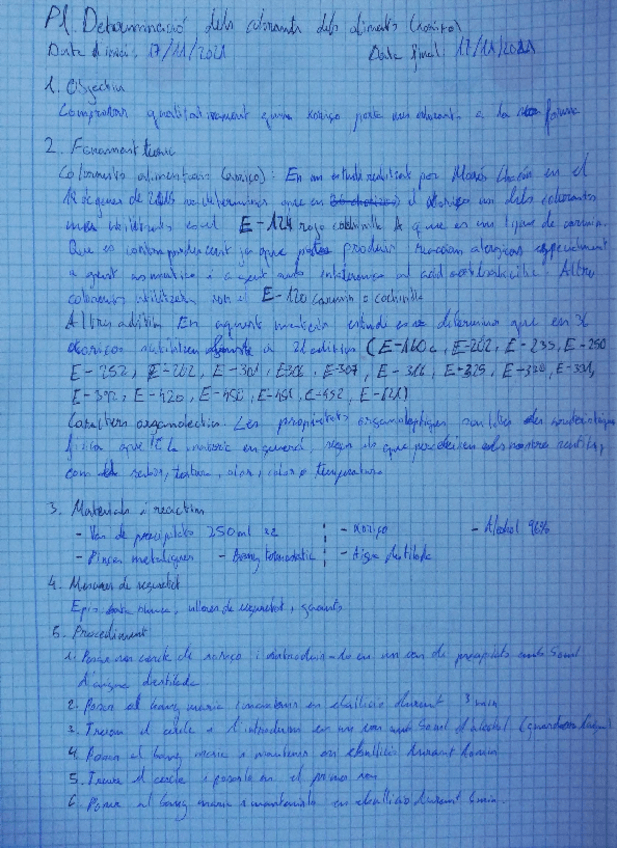 P1. Determinació dels colorants dels aliments (xoriço)
Data d'inici: 17/11/2021 Data final: 17/11/2021
1. Objectiu
Comprovar qualitativament quin xoriço porta més colorant a la forma
2. Fonament teòric
Colorants alimentaris (xoriço): En un estudi realitzat per Chacón en el
de 2015 va determinar que en el xoriço un dels colorants
més utilitzats és el E-124 rojo cochinilla A que és un tipus de
Que és contraproduent ja que pot produir reaccions al·lèrgiques especialment
a gent asmàtica i a gent amb intolerància al àcid acetilsalicílic. Altres
colorants utilitzats son el E-120 carmín o cochinilla
Altres additius En aquest mateix estudi es va determinar que en
xoriços utilitzen a 21 additius (E-160c, E-262, E-235, E-250
E-252, E-262, E-301, E316, E-307, E-316, E-325, E-330, E-331,
E-392, E-420, E-450, E-451, E-452, E-621)
Caràcters organolèptics. Les propietats organolèptiques son totes les característiques
físiques que té la matèria en general, segons les que perceben els nostres sentits,
com el sabor, textura, olor, color o temperatura.
3. Materials i reactius
- Vas de precipitats 250ml x2 - Xoriço - Alcohol 96%
- Pinces metàl·liques - Bany termostàtic - Aigua destilada
4. Mesures de seguretat
Epis: bata blanca, ulleres de seguretat, guants
5. Procediment
1. Posar un cercle de xoriço i introduir-lo en un vas de precipitats amb 50ml
d'aigua destilada
2. Posar al bany maria i mantenir en ebullició durant 3 min
3. Treure el cercle i l'introduïm en un vas amb 50ml d'alcohol
4. Posar al bany maria i mantenir en ebullició durant
5. Treure el cercle i posarlo en el primer vas
6. Posar al bany maria i mantenirlo en ebullició durant 6min.